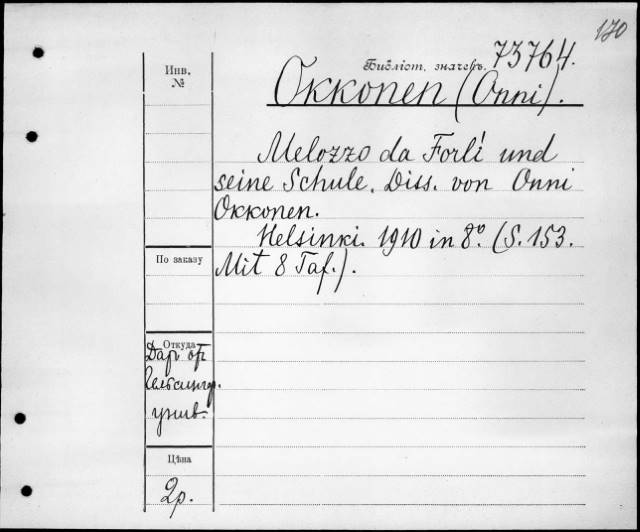 170
Инв.
№
Библіот. значекъ. 73764.
Okkonen (Onni).
Melozzo da Forlì und
seine Schule. Diss. von Onni
Okkonen.
Helsinki. 1910 in 8º. (S. 153.
Mit 8 Taf.).
По заказу
Откуда
Даръ от
Гельсингф.
унив.
Цѣна
2р.